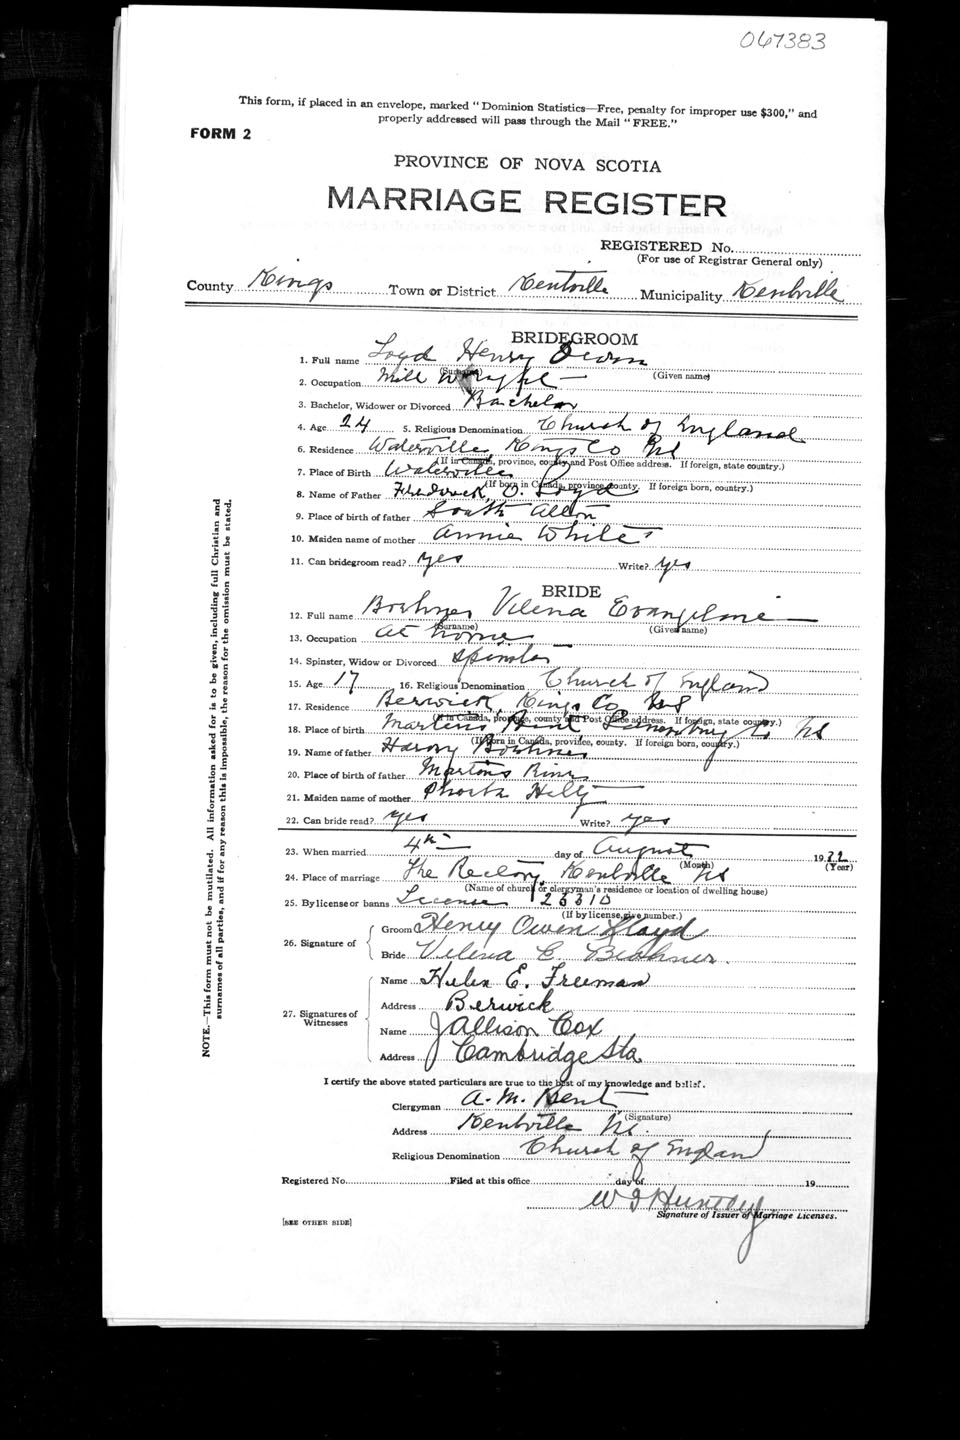 067383
This form, if placed in an envelope, marked "Dominion Statistics—Free, penalty for improper use $300," and
properly addressed will pass through the Mail "FREE."
FORM 2
PROVINCE OF NOVA SCOTIA
MARRIAGE REGISTER
REGISTERED No.
(For use of Registrar General only)
County Kings Town or District Kentville Municipality Kentville
BRIDEGROOM
1. Full name Loyd Henry Owen
(Surname) (Given name)
2. Occupation Mill Wright
3. Bachelor, Widower or Divorced Bachelor
4. Age 24 5. Religious Denomination Church of England
6. Residence Waterville Kings Co NS
(If in Canada, province, county and Post Office address. If foreign, state country.)
7. Place of Birth Waterville
(If born in Canada, province, county. If foreign born, country.)
8. Name of Father Frederick O. Loyd
9. Place of birth of father South Alton
10. Maiden name of mother Annie White
11. Can bridegroom read? yes Write? yes
BRIDE
12. Full name Boehner Velena Evangeline
(Surname) (Given name)
13. Occupation at home
14. Spinster, Widow or Divorced Spinster
15. Age 17 16. Religious Denomination Church of England
17. Residence Berwick Kings Co NS
(If in Canada, province, county and Post Office address. If foreign, state country.)
18. Place of birth Martins Lunenburg Co NS
(If born in Canada, province, county. If foreign born, country.)
19. Name of father Harry Boehner
20. Place of birth of father Martins River
21. Maiden name of mother Hilty
22. Can bride read? yes Write? yes
23. When married 4th day of August 1922
(Month) (Year)
24. Place of marriage The Rectory Kentville NS
(Name of church or clergyman's residence or location of dwelling house)
25. By license or banns License 25310
(If by license, give number.)
26. Signature of Groom Henry Owen Lloyd
Bride Velena E. Beohner.
27. Signatures of Witnesses Name Helen E. Freeman
Address Berwick
Name J Allison Cox
Address Cambridge Sta.
I certify the above stated particulars are true to the best of my knowledge and belief.
Clergyman A. M. Bent
(Signature)
Address Kentville NS.
Religious Denomination Church of England
Registered No. Filed at this office day of 19
W J Huntley
Signature of Issuer of Marriage Licenses.
[SEE OTHER SIDE]
NOTE.—This form must not be mutilated. All information asked for is to be given, including full Christian and
surnames of all parties, and if for any reason this is impossible, the reason for the omission must be stated.